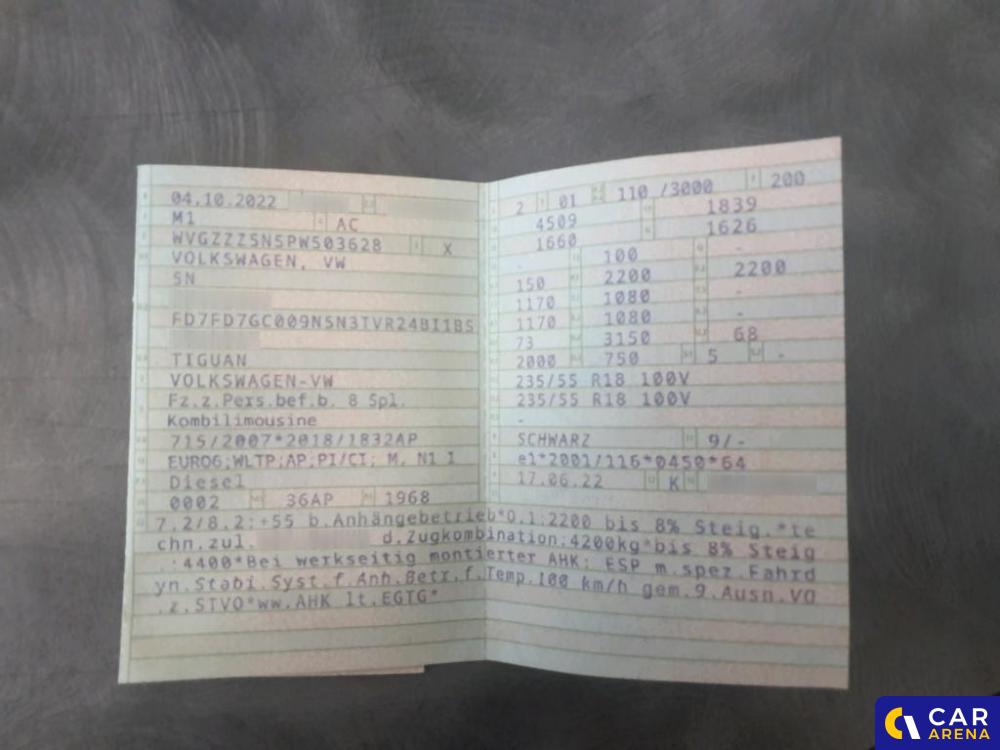 04.10.2022
M1 AC
WVGZZZ5N5PW503628 X
VOLKSWAGEN, VW
5N
FD7FD7GC009N5N3TVR24BI1BS
TIGUAN
VOLKSWAGEN-VW
Fz.z.Pers.bef.b. 8 Spl.
Kombilimousine
715/2007*2018/1832AP
EURO6;WLTP;AP;PI/CI; M, N1 I
Diesel
0002 36AP 1968
2 01 110 /3000 200
4509 1839
1660 1626
- 100 -
150 2200 2200
1170 1080 -
1170 1080 -
73 3150 68
2000 750 5 -
235/55 R18 100V
235/55 R18 100V
-
SCHWARZ 9/-
e1*2001/116*0450*64
17.06.22 K
7.2/8.2:+55 b.Anhängebetrieb*O.1:2200 bis 8% Steig.*te
chn.zul. d.Zugkombination:4200kg*bis 8% Steig
.:4400*Bei werkseitig montierter AHK: ESP m.spez.Fahrd
yn.Stabi.Syst.f.Anh.Betr.f.Temp.100 km/h gem.9.Ausn.VO
.z.STVO*ww.AHK lt.EGTG*
CAR
ARENA